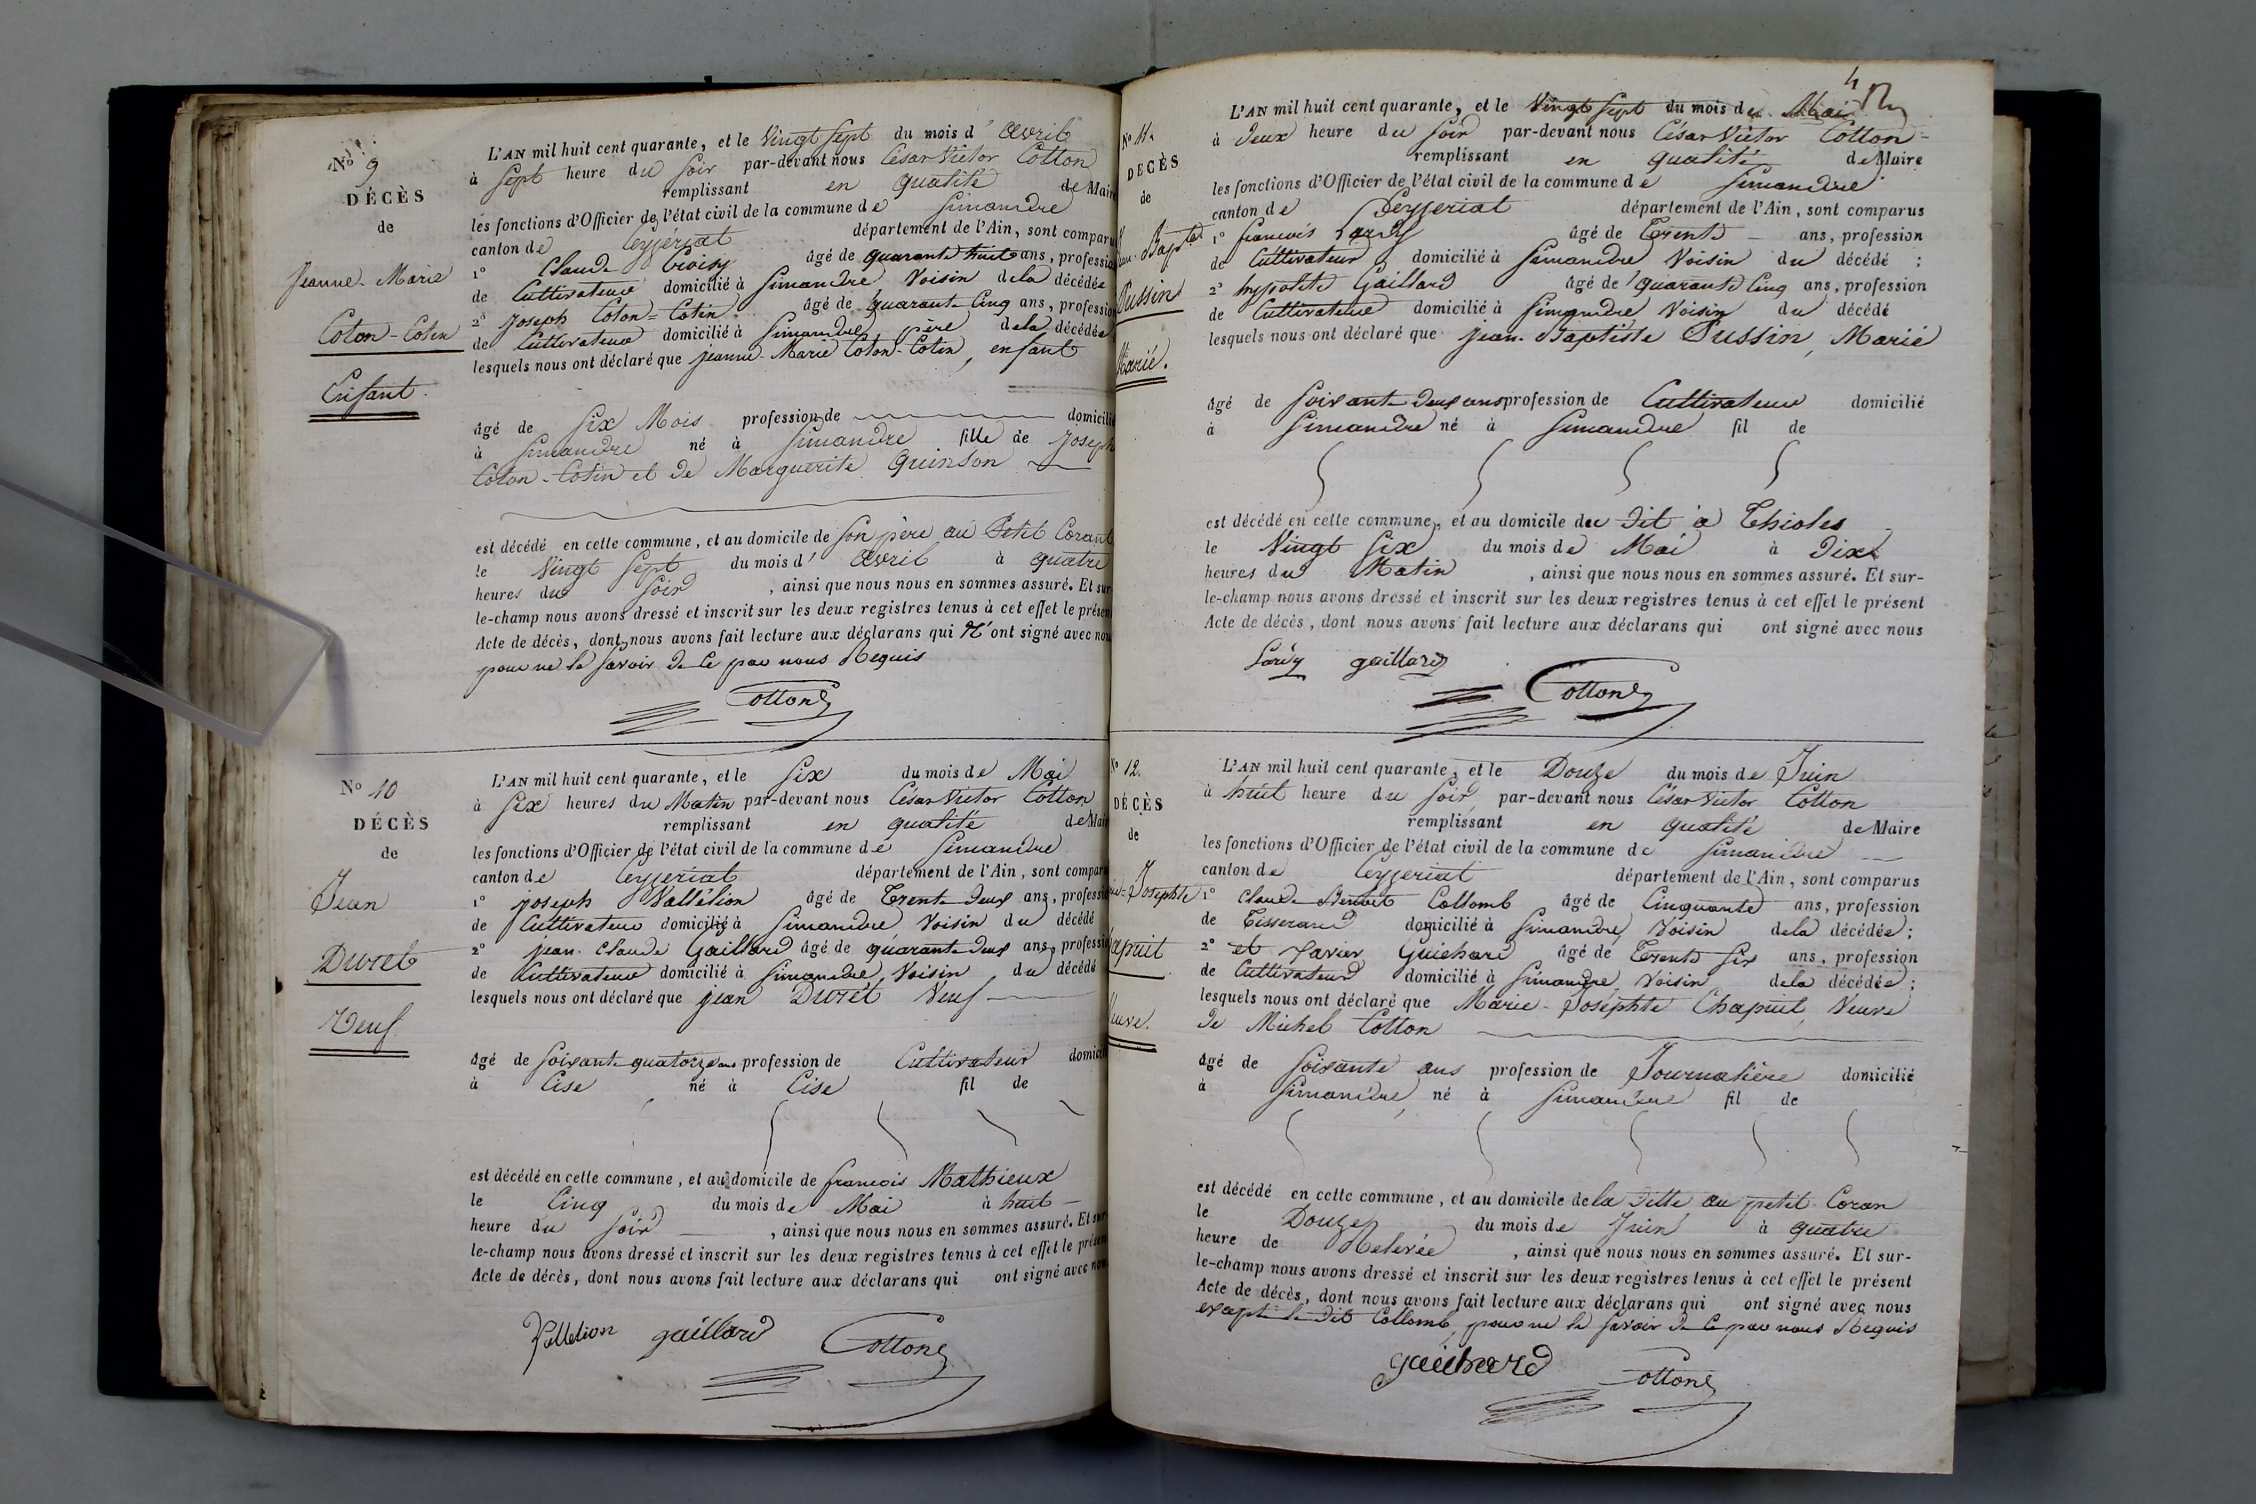 No 9
DÉCÈS
de
Jeanne-Marie
Coton-Cotin
Enfant.
L'AN mil huit cent quarante, et le Vingt Sept du mois d' Avril
à Sept heure du Soir par-devant nous César Victor Cotton
remplissant en qualité de Maire
les fonctions d'Officier de l'état civil de la commune de Simandre
canton de Ceyzériat département de l'Ain, sont comparus
1° Claude Croisy âgé de quarante huit ans, profession
de Cultivateur domicilié à Simandre Voisin de la décédée
2° Joseph Coton-Cotin âgé de quarante Cinq ans, profession
de Cultivateur domicilié à Simandre, père de la décédée
lesquels nous ont déclaré que jeanne-Marie Coton-Cotin, enfant
âgé de Six Mois profession de domicilié
à Simandre né à Simandre fille de Joseph
Coton-Cotin et de Marguerite Quinson
est décédé en cette commune, et au domicile de Son père au Petit Corant
le Vingt Sept du mois d' Avril à quatre
heures du Soir, ainsi que nous nous en sommes assuré. Et sur-
le-champ nous avons dressé et inscrit sur les deux registres tenus à cet effet le présent
Acte de décès, dont nous avons fait lecture aux déclarans qui N'ont signé avec nous
pour ne le Savoir de Ce par nous Requis
Cotton
No 10
DÉCÈS
de
Jean
Duret
Veuf
L'AN mil huit cent quarante, et le Six du mois de Mai
à Six heures du Matin par-devant nous César Victor Cotton
remplissant en qualité de Maire
les fonctions d'Officier de l'état civil de la commune de Simandre
canton de Ceyzeriat département de l'Ain, sont comparus
1° joseph Vallélion âgé de Trente Deux ans, profession
de Cultivateur domicilié à Simandre, Voisin du décédé
2° jean-Claude Gaillard âgé de quarante Deux ans, profession
de Cultivateur domicilié à Simandre, Voisin du décédé
lesquels nous ont déclaré que jean Duret Veuf
âgé de Soixante quatorze ans profession de Cultivateur domicilié
à Cise né à Cise fil de
est décédé en cette commune, et au domicile de francois Mathieux
le Cinq du mois de Mai à huit
heure du Soir, ainsi que nous nous en sommes assuré. Et sur-
le-champ nous avons dressé et inscrit sur les deux registres tenus à cet effet le présent
Acte de décès, dont nous avons fait lecture aux déclarans qui ont signé avec nous
Vallelion gaillard Cotton
4
No 11.
DÉCÈS
de
Jean-Baptiste
Pussin
Marié.
L'AN mil huit cent quarante, et le Vingt Sept du mois de Mai
à Deux heure du Soir par-devant nous César Victor Cotton
remplissant en qualité de Maire
les fonctions d'Officier de l'état civil de la commune de Simandre
canton de Ceyzeriat département de l'Ain, sont comparus
1° francois Lardy âgé de Trente ans, profession
de Cultivateur domicilié à Simandre Voisin du décédé ;
2° hypolite Gaillard âgé de quarante Cinq ans, profession
de Cultivateur domicilié à Simandre Voisin du décédé
lesquels nous ont déclaré que jean-Baptiste Pussin, Marié
âgé de Soixante Deux ans profession de Cultivateur domicilié
à Simandre né à Simandre fil de
est décédé en cette commune, et au domicile du Dit à Thioles
le Vingt Six du mois de Mai à Dix
heures du Matin, ainsi que nous nous en sommes assuré. Et sur-
le-champ nous avons dressé et inscrit sur les deux registres tenus à cet effet le présent
Acte de décès, dont nous avons fait lecture aux déclarans qui ont signé avec nous
gaillard
Cotton
No 12.
DÉCÈS
de
Josephte
Chapuit
Veuve.
L'AN mil huit cent quarante, et le Douze du mois de Juin
à huit heure du Soir par-devant nous César Victor Cotton
remplissant en qualité de Maire
les fonctions d'Officier de l'état civil de la commune de Simandre
canton de Ceyzeriat département de l'Ain, sont comparus
1° Claude Benoit Collomb âgé de Cinquante ans, profession
de Tisserand domicilié à Simandre, Voisin de la décédée ;
2° et Xavier Guichard âgé de Trente Six ans, profession
de Cultivateur domicilié à Simandre, Voisin de la décédée ;
lesquels nous ont déclaré que Marie-Josephte Chapuit, Veuve
de Michel Cotton
âgé de Soixante ans profession de Journalière domicilié
à Simandre né à Simandre fil de
est décédé en cette commune, et au domicile de la Ditte au petit Coran
le Douze du mois de Juin à quatre
heure de Relevée, ainsi que nous nous en sommes assuré. Et sur-
le-champ nous avons dressé et inscrit sur les deux registres tenus à cet effet le présent
Acte de décès, dont nous avons fait lecture aux déclarans qui ont signé avec nous
exapté le Dit Collomb, pour ne le Savoir de Ce par nous Requis
guichard Cotton